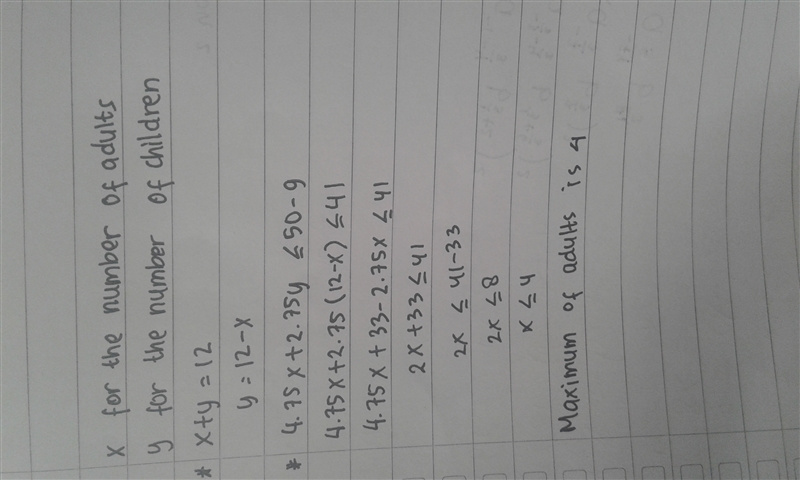 x for the number of adults
y for the number of children
* x+y = 12
y = 12-x
* 4.75x+2.75y ≤ 50-9
4.75x+2.75(12-x) ≤ 41
4.75x+33-2.75x ≤ 41
2x+33 ≤ 41
2x ≤ 41-33
2x ≤ 8
x ≤ 4
Maximum of adults is 4